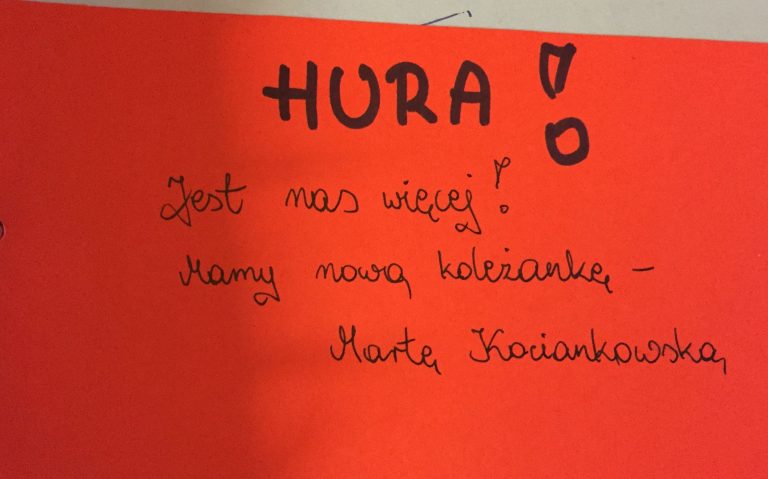 HURA!
Jest nas więcej!
Mamy nową koleżankę -
Martę Kociankowską